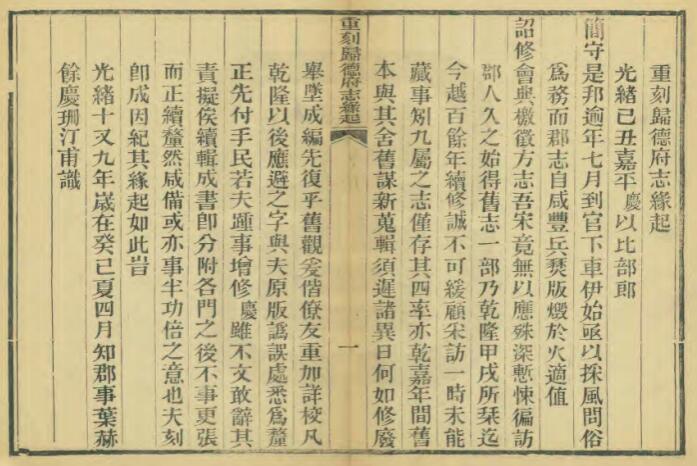 重刻歸德府志緣起
光緒己丑嘉平慶以比部郎
簡守是邦逾年七月到官下車伊始亟以採風問俗
爲務而郡志自咸豐兵燹版燬於火適值
詔修會典檄徵方志吾宋竟無以應殊深慙悚徧訪
鄀人久之始得舊志一部乃乾隆甲戌所栞迄
今越百餘年續修誠不可緩顧宋訪一時未能
蕆事矧九屬之志僅存其四率亦乾嘉年間舊
本與其舍舊謀新蒐輯須遲諸異日何如修廢
重刻歸德府志緣起
一
舉墜成編先復乎舊觀爰偕僚友重加詳校凡
乾隆以後應避之字與夫原版譌誤處悉爲釐
正先付手民若夫踵事增修慶雖不文敢辭其
責擬俟續輯成書即分附各門之後不事更張
而正續釐然咸備或亦事半功倍之意也夫刻
卽成因紀其緣起如此旹
光緒十又九年嵗在癸巳夏四月知郡事葉赫
餘慶珊汀甫識